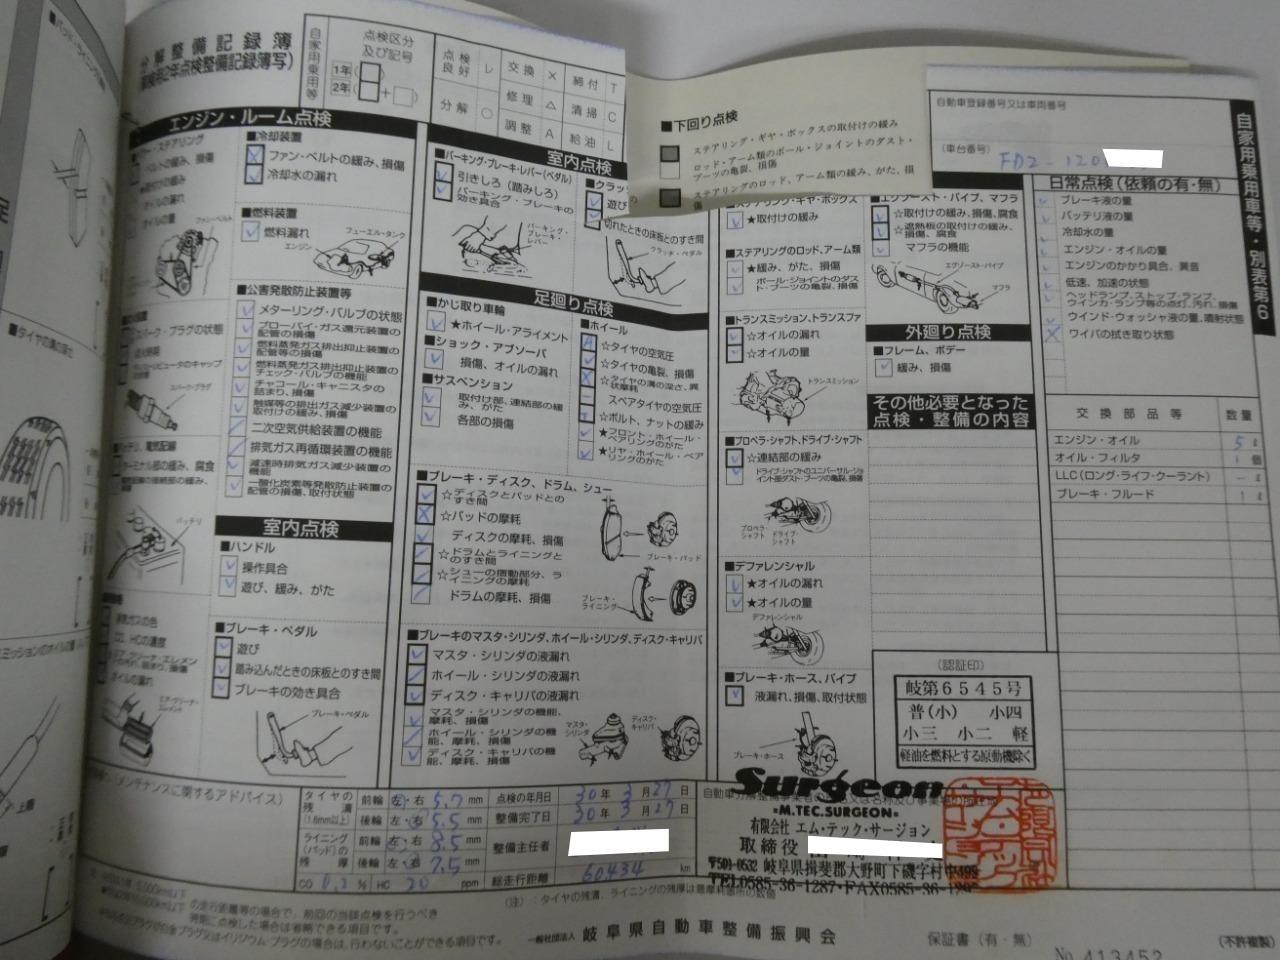 分解整備記録簿
点検整備記録簿写)
自家用乗用等
点検区分
及び記号
1年
2年
点検良好 レ 交換 × 締付 T
分解 ○ 修理 △ 清掃 C
調整 A 給油 L
エンジン・ルーム点検
ベルトの緩み、損傷
取付けの緩み
オイルの漏れ
オイルの量
ファン・ベルト
スパーク・プラグの状態
スパーク・プラグ
ターミナル部の緩み、腐食
バッテリ
排気ガスの色
CO、HCの濃度
オイルの漏れ
エア・クリーナ・エレメント
■冷却装置
ファン・ベルトの緩み、損傷
冷却水の漏れ
■燃料装置
燃料漏れ
フューエル・タンク
エンジン
■公害発散防止装置等
メターリング・バルブの状態
ブローバイ・ガス還元装置の配管の損傷
燃料蒸発ガス排出抑止装置の配管等の損傷
燃料蒸発ガス排出抑止装置のチェック・バルブの機能
チャコール・キャニスタの詰まり、損傷
触媒等の排出ガス減少装置の取付けの緩み、損傷
二次空気供給装置の機能
排気ガス再循環装置の機能
減速時排気ガス減少装置の機能
一酸化炭素等発散防止装置の配管の損傷、取付状態
室内点検
■ハンドル
操作具合
遊び、緩み、がた
■ブレーキ・ペダル
遊び
踏み込んだときの床板とのすき間
ブレーキの効き具合
ブレーキ・ペダル
室内点検
■パーキング・ブレーキ・レバー(ペダル)
引きしろ(踏みしろ)
パーキング・ブレーキの効き具合
パーキング・ブレーキ・レバー
遊び
切れたときの床板とのすき間
クラッチ・ペダル
足廻り点検
■かじ取り車輪
★ホイール・アライメント
■ショック・アブソーバ
損傷、オイルの漏れ
■サスペンション
取付部、連結部の緩み、がた
各部の損傷
■ホイール
☆タイヤの空気圧
☆タイヤの亀裂、損傷
☆タイヤの溝の深さ、異状摩耗
スペアタイヤの空気圧
☆ボルト、ナットの緩み
★フロント・ホイール・ベアリングのがた
★リヤ・ホイール・ベアリングのがた
■ブレーキ・ディスク、ドラム、シュー
☆ディスクとパッドとのすき間
☆パッドの摩耗
ディスクの摩耗、損傷
☆ドラムとライニングとのすき間
☆シューの摺動部分、ライニングの摩耗
ドラムの摩耗、損傷
ブレーキ・パッド
ブレーキ・ライニング
■ブレーキのマスタ・シリンダ、ホイール・シリンダ、ディスク・キャリパ
マスタ・シリンダの液漏れ
ホイール・シリンダの液漏れ
ディスク・キャリパの液漏れ
マスタ・シリンダの機能、摩耗、損傷
ホイール・シリンダの機能、摩耗、損傷
ディスク・キャリパの機能、摩耗、損傷
マスタ・シリンダ
ディスク・キャリパ
■下回り点検
ステアリング・ギヤ・ボックスの取付けの緩み
ロッド・アーム類のボール・ジョイントのダスト・ブーツの亀裂、損傷
ステアリングのロッド、アーム類の緩み、がた、損傷
■ステアリング・ギヤ・ボックス
★取付けの緩み
■ステアリングのロッド、アーム類
★緩み、がた、損傷
ボール・ジョイントのダスト・ブーツの亀裂、損傷
■トランスミッション、トランスファ
☆オイルの漏れ
☆オイルの量
トランスミッション
■プロペラ・シャフト、ドライブ・シャフト
☆連結部の緩み
ドライブ・シャフトのユニバーサル・ジョイント部ダスト・ブーツの亀裂、損傷
プロペラ・シャフト
ドライブ・シャフト
■デファレンシャル
★オイルの漏れ
★オイルの量
デファレンシャル
■ブレーキ・ホース、パイプ
液漏れ、損傷、取付状態
ブレーキ・ホース
■エグゾースト・パイプ、マフラ
☆取付けの緩み、損傷、腐食
☆遮熱板の取付けの緩み、損傷、腐食
マフラの機能
エグゾースト・パイプ
マフラ
外廻り点検
■フレーム、ボデー
緩み、損傷
その他必要となった点検・整備の内容
自動車登録番号又は車両番号
(車台番号)
FD2-120
自家用乗用車等・別表第6
日常点検(依頼の有・無)
ブレーキ液の量
バッテリ液の量
冷却水の量
エンジン・オイルの量
エンジンのかかり具合、異音
低速、加速の状態
ヘッドランプ、ストップ・ランプ、ウインカ・ランプ等の点灯、汚れ、損傷
ウインド・ウォッシャ液の量、噴射状態
ワイパの拭き取り状態
交換部品等 数量
エンジン・オイル 5 ℓ
オイル・フィルタ 1 個
LLC(ロング・ライフ・クーラント) - ℓ
ブレーキ・フルード 1 ℓ
(認証印)
岐第6545号
普(小) 小四
小三 小二 軽
軽油を燃料とする原動機除く
(メンテナンスに関するアドバイス)
タイヤの残溝 (1.6mm以上) 前輪 左・右 5.7 mm
後輪 左・右 5.5 mm
ライニング(パッド)の残厚 前輪 左・右 8.5 mm
後輪 左・右 7.5 mm
CO 0.2 % HC 20 ppm
点検の年月日 30年 3月 27日
整備完了日 30年 3月 27日
整備主任者
総走行距離 60434 km
Surgeon
■M.TEC.SURGEON■
有限会社 エム・テック・サージョン
取締役
〒501-0532 岐阜県揖斐郡大野町下磯字村中498
TEL0585-36-1287・FAX0585-36-
(注):タイヤの残溝、ライニングの残厚は最摩耗箇所の数値
の走行距離等の場合で、前回の当該点検を行うべき
時期に点検した場合は省略できる項目です。
一般社団法人 岐阜県自動車整備振興会
保証書(有・無)
No 413452
(不許複製)